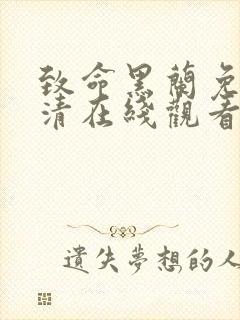 致命黑蘭免
清在綫觀看
遺失夢想的人